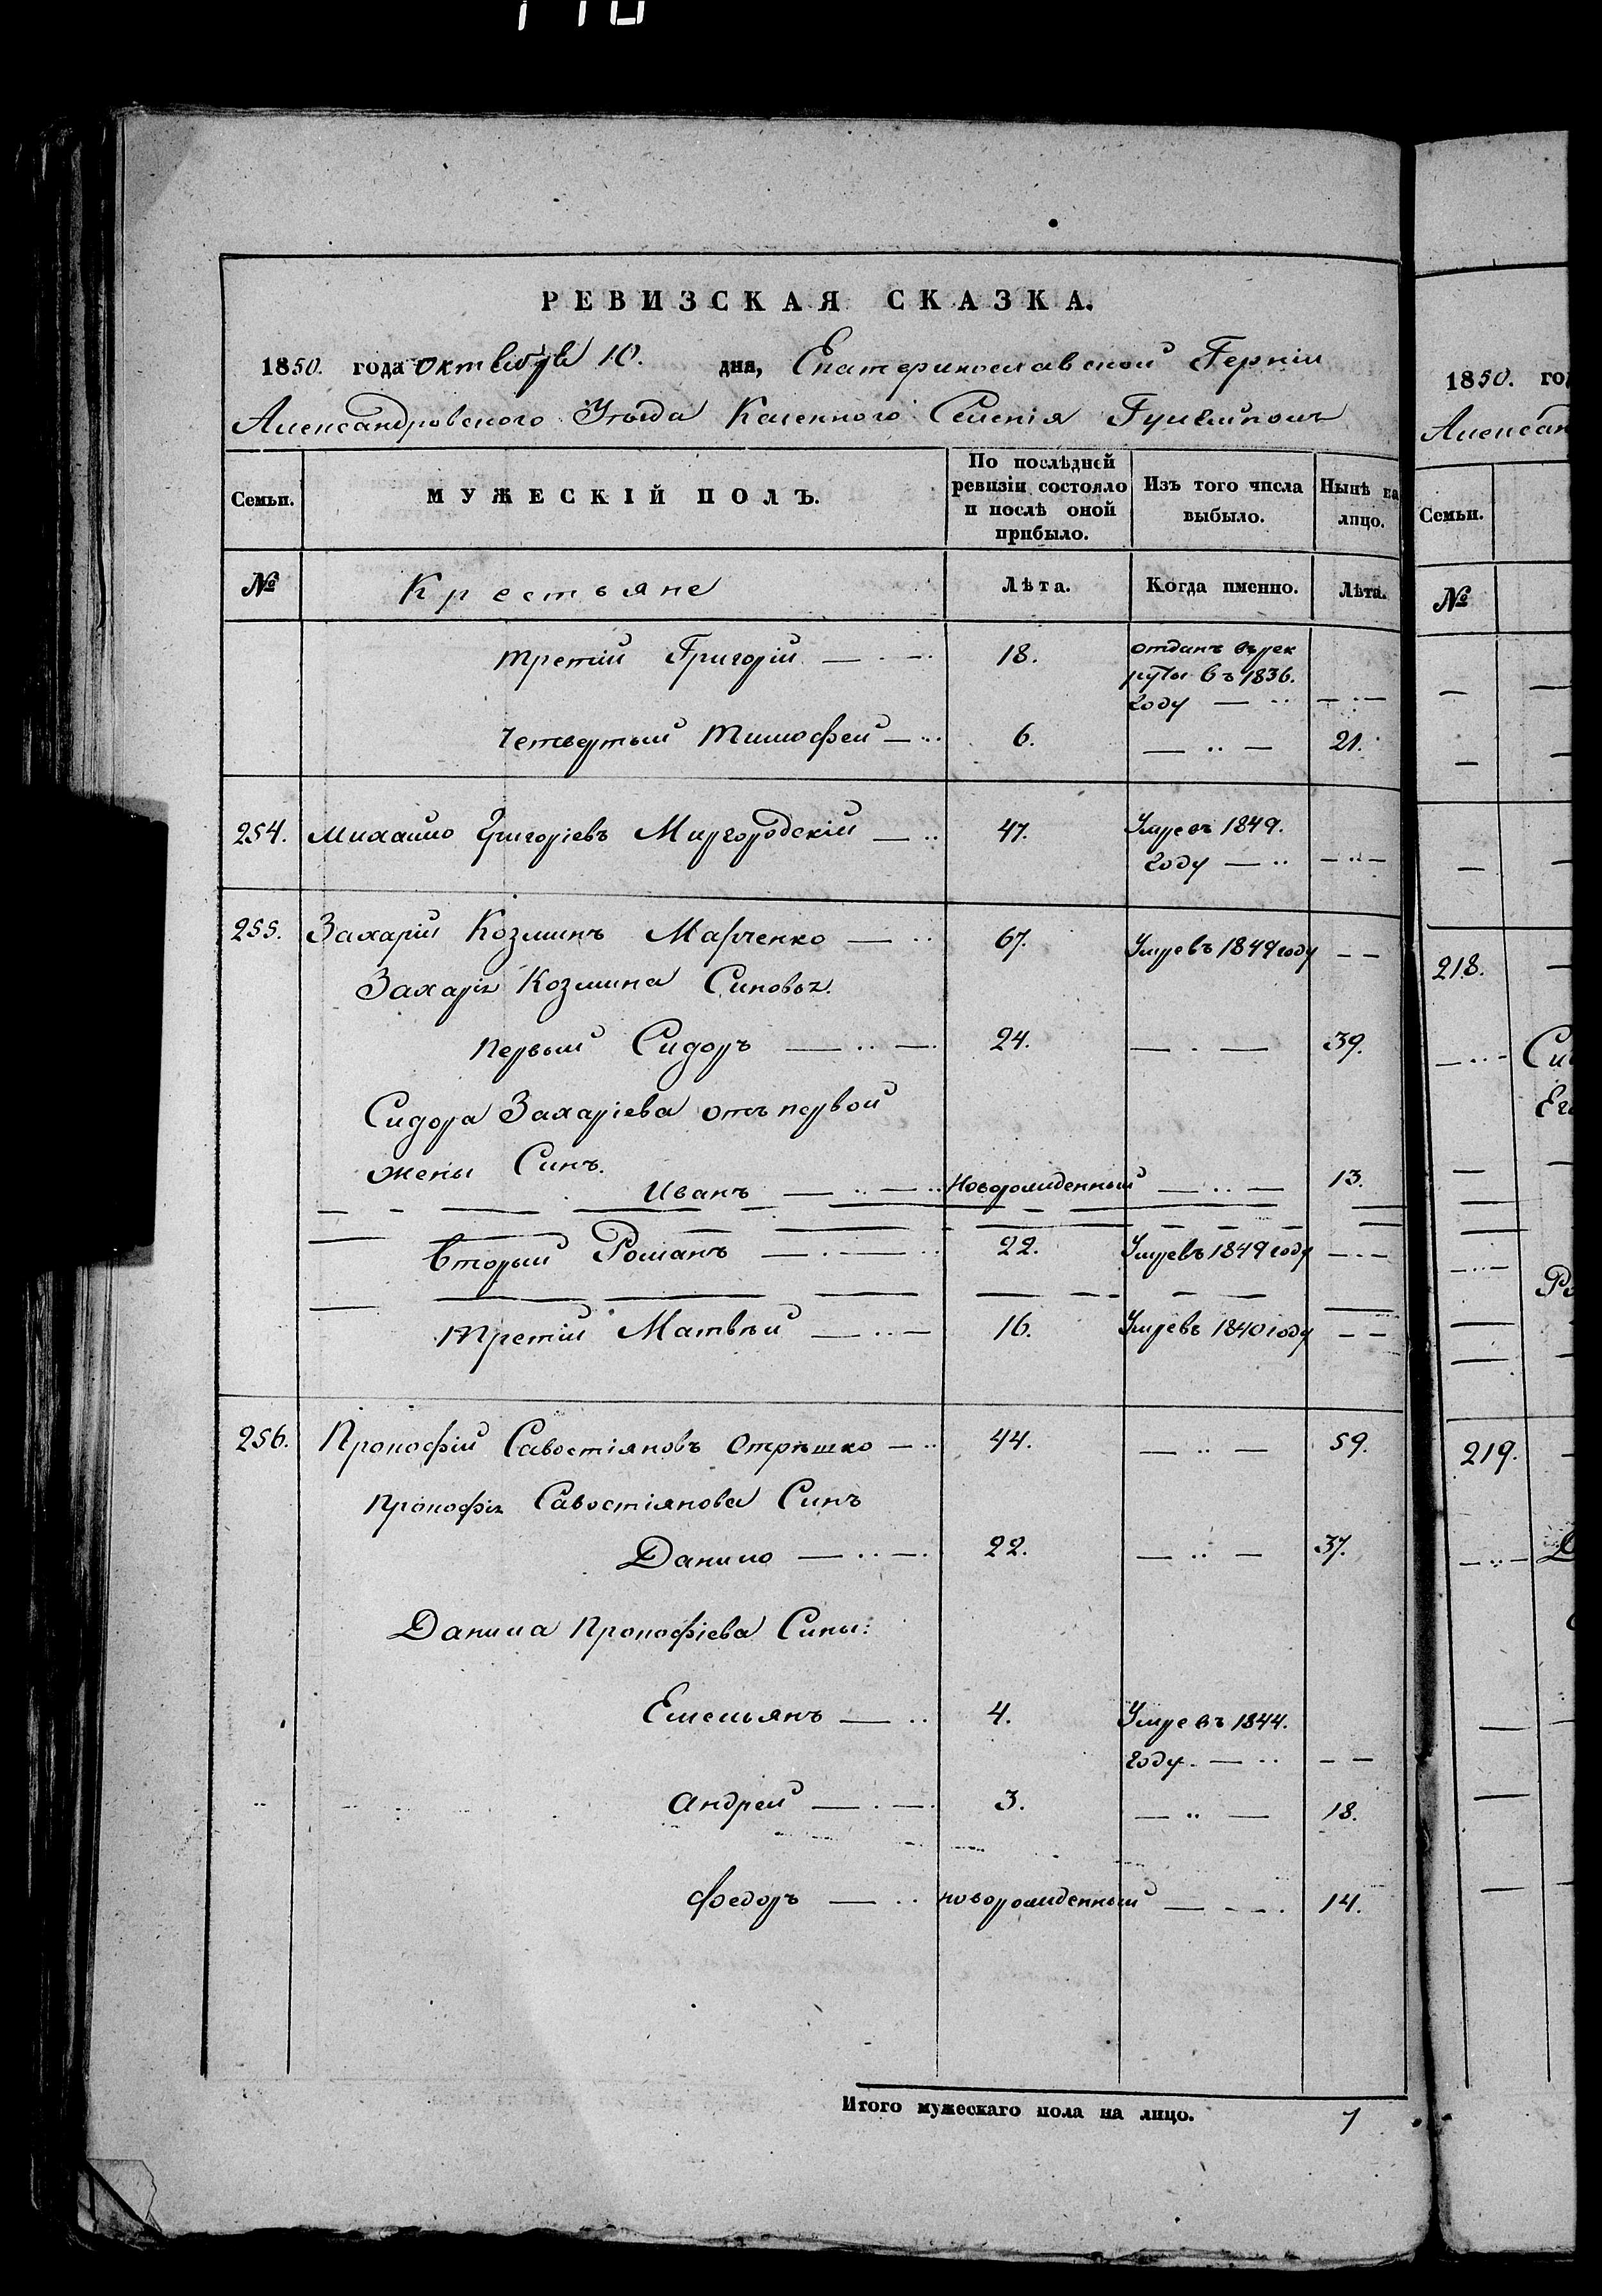 РЕВИЗСКАЯ СКАЗКА.
1850. года октября 10. дня, Екатеринославской Губерніи
Александровского Уезда Казенного Селенія Гуляйполь
Семьи.
МУЖЕСКІЙ ПОЛЪ.
По послѣдней ревизіи состояло и послѣ оной прибыло.
Изъ того числа выбыло.
Нынѣ на лицо.
№ Крестьяне Лѣта. Когда именно. Лѣта.
третій Григорій 18. отданъ въ рек
руты въ 1836.
году
четвертый Тимофей 6. 21.
254. Михайло Григоріевъ Миргородскій 47. Умре въ 1849.
году
255. Захарій Козминъ Марченко 67. Умре въ 1849 году
Захарія Козмина Синовья.
первый Сидоръ 24. 39.
Сидора Захаріева отъ первой
жены Синъ.
Иванъ Новорожденный 13.
Вторый Романъ 22. Умре въ 1849 году
третій Матвѣй 16. Умре въ 1840 году
256. Прокофій Савостіяновъ Отрѣшко 44. 59.
Прокофія Савостіянова Синъ
Данило 22. 37.
Данила Прокофіева Сины:
Емельянъ 4. Умре въ 1844.
году.
Андрей 3. 18.
Федоръ новорожденный 14.
Итого мужескаго пола на лицо. 7
1850. го
Александ
Семьи.
№
218.
Си
Ег
Ро
219.
Д